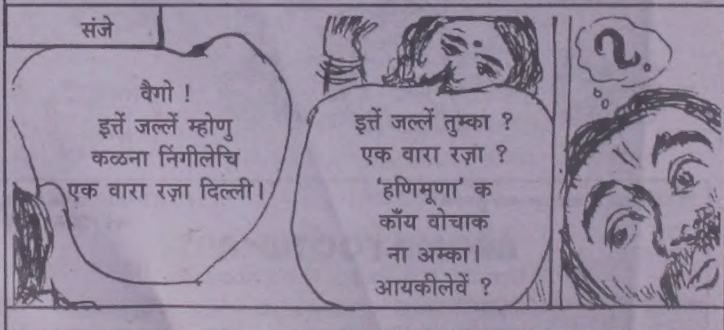 संजे
वैगो !
इत्तें जल्लें म्होणु
कळना निंगीलेचि
एक वारा रज़ा दिल्ली।
इत्तें जल्लें तुम्का ?
एक वारा रज़ा ?
'हणिमूणा' क
काँय वोचाक
ना अम्का।
आयकीलेवें ?
?